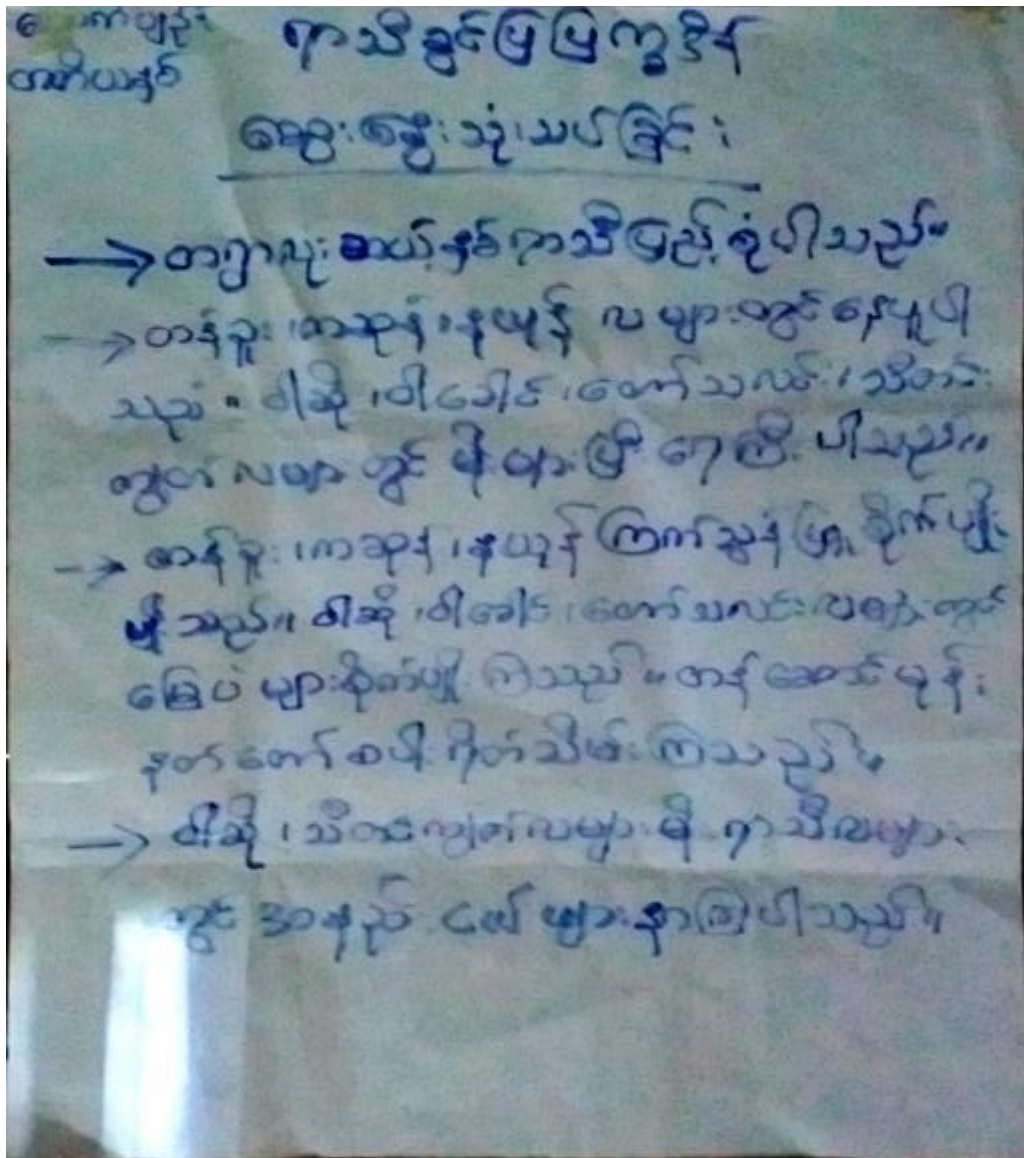 ရာသီခွင်ပြပြက္ခဒိန်
ဆွေးနွေးသုံးသပ်ခြင်း
→ တရာသုး ဆယ့်နှစ်ရာသီပြည့်စုံပါသည်။
→ တန်ခူး၊ကဆုန်၊နယုန် လများတွင်နေပူပါ
သည်။ ဝါဆို၊ဝါခေါင်၊တော်သလင်း၊သီတင်း
ကျွတ်လများတွင် မိုးများပြီး ရေကြီးပါသည်။
→ တန်ခူး၊ကဆုန်၊နယုန် ကြက်သွန်မြာ စိုက်ပျိုး
သည်။ ဝါဆို၊ဝါခေါင်၊တော်သလင်းလများတွင်
မြေပဲများစိုက်ပျိုးကြသည်။ တန်ဆောင်မုန်း
နတ်တော်စပါးရိတ်သိမ်းကြသည်။
→ ဝါဆို၊သီတင်းကျွတ်လများ မိုးရာသီလများ
တွင် အနည်းငယ်ဖျားနာကြပါသည်။